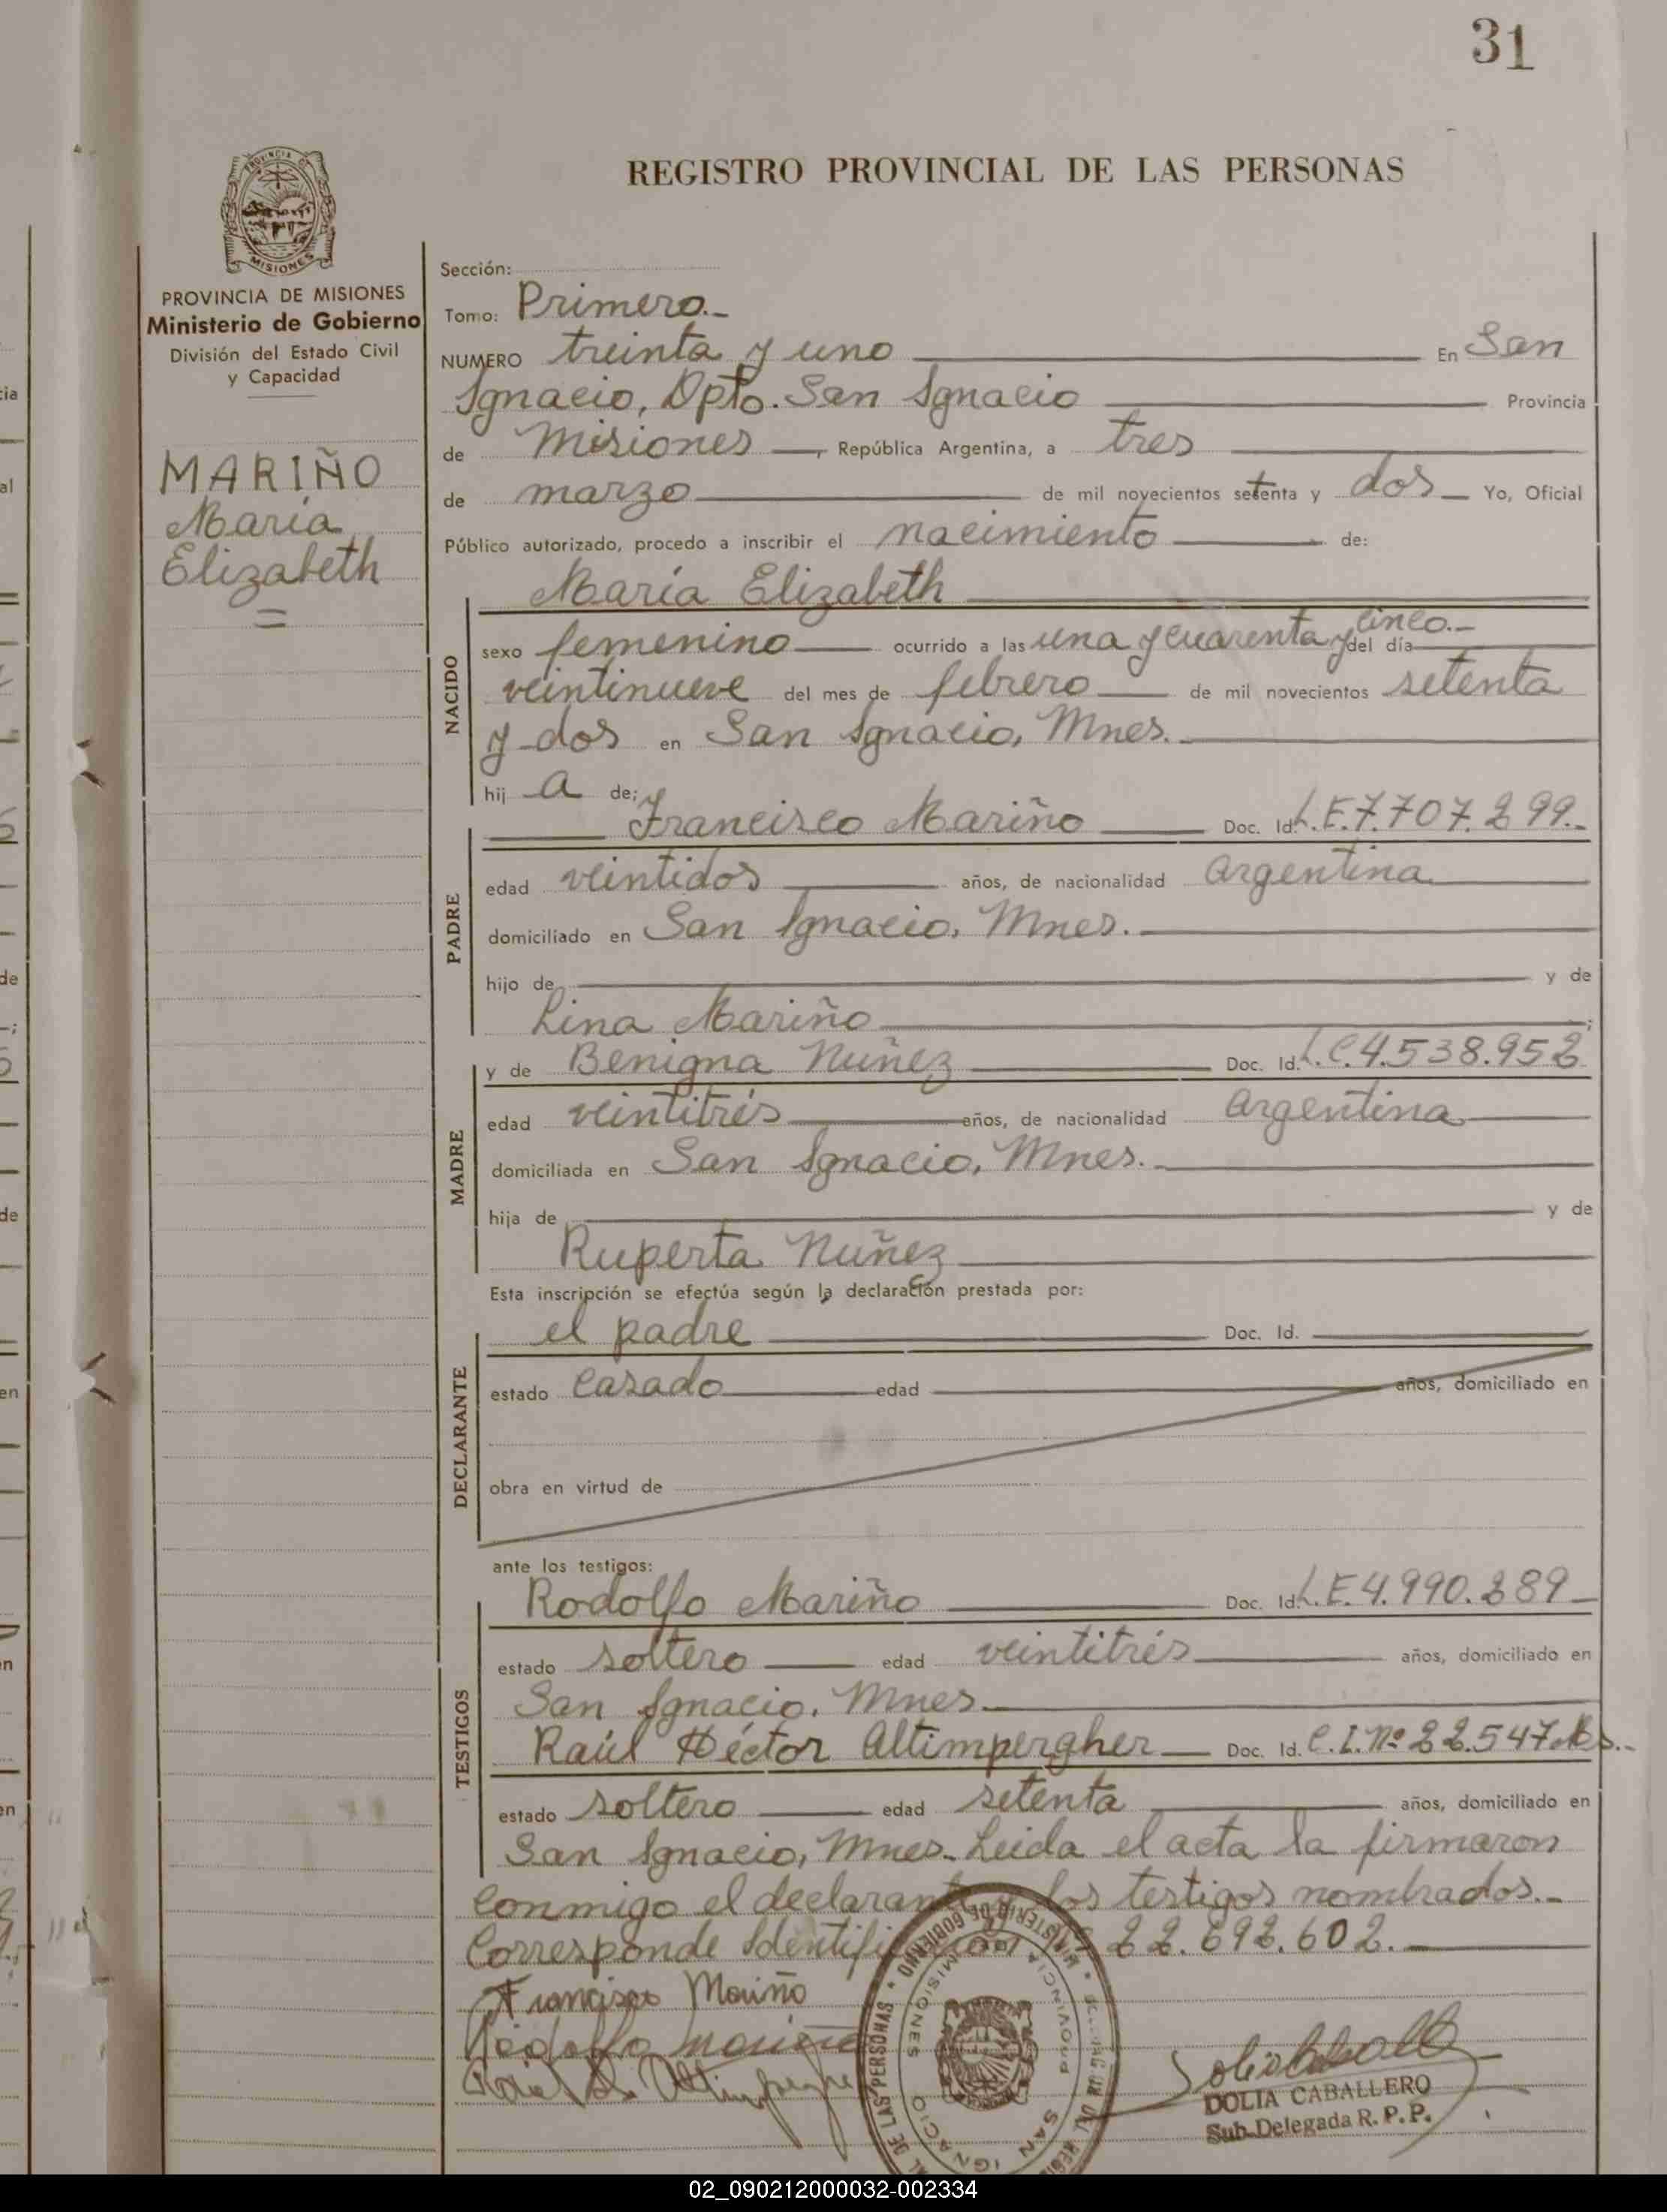 31
REGISTRO PROVINCIAL DE LAS PERSONAS
PROVINCIA DE
MISIONES
PROVINCIA DE MISIONES
Ministerio de Gobierno
División del Estado Civil
y Capacidad
MARIÑO
María
Elizabeth
Sección:
Tomo: Primero.-
NUMERO treinta y uno En San
Ignacio, Dpto. San Ignacio Provincia
de Misiones, República Argentina, a tres
de marzo de mil novecientos setenta y dos Yo, Oficial
Público autorizado, procedo a inscribir el nacimiento de:
María Elizabeth
NACIDO
sexo femenino ocurrido a las una y cuarenta y cinco.- del día
veintinueve del mes de febrero de mil novecientos setenta
y dos en San Ignacio, Mnes.
hij a de;
PADRE
Francisco Mariño Doc. Id. L.E.7.707.299.-
edad veintidos años, de nacionalidad argentina
domiciliado en San Ignacio, Mnes.
hijo de y de
Lina Mariño ;
MADRE
y de Benigna Nuñez Doc. Id. L.C.4.538.952
edad veintitrés años, de nacionalidad argentina
domiciliada en San Ignacio, Mnes.
hija de y de
Ruperta Nuñez
Esta inscripción se efectúa según la declaración prestada por:
DECLARANTE
el padre Doc. Id.
estado casado edad años, domiciliado en
obra en virtud de
ante los testigos:
TESTIGOS
Rodolfo Mariño Doc. Id. L.E.4.990.289
estado soltero edad veintitrés años, domiciliado en
San Ignacio, Mnes.
Raúl Héctor Altimpergher Doc. Id. C.I.Nº 22.547
estado soltero edad setenta años, domiciliado en
San Ignacio, Mnes. Leida el acta la firmaron
conmigo el declarante y los testigos nombrados.-
Corresponde 22.692.602.
Francisco Mariño
Rodolfo Mariño
DOLIA CABALLERO
Sub-Delegada R.P.P.
MINISTERIO DE GOBIERNO
DE LAS PERSONAS
PROVINCIA MISIONES
SAN IGNACIO
02_090212000032-002334